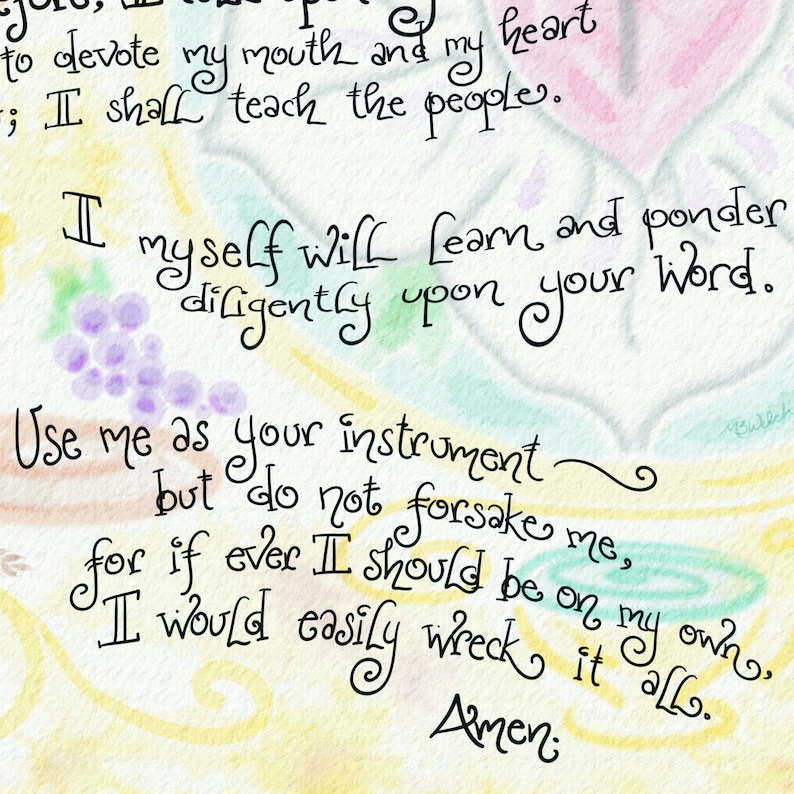 to devote my mouth and my heart
; I shall teach the people.
I myself will learn and ponder
diligently upon your Word.
Use me as your instrument
but do not forsake me,
for if ever I should be on my own,
I would easily wreck it all.
Amen.